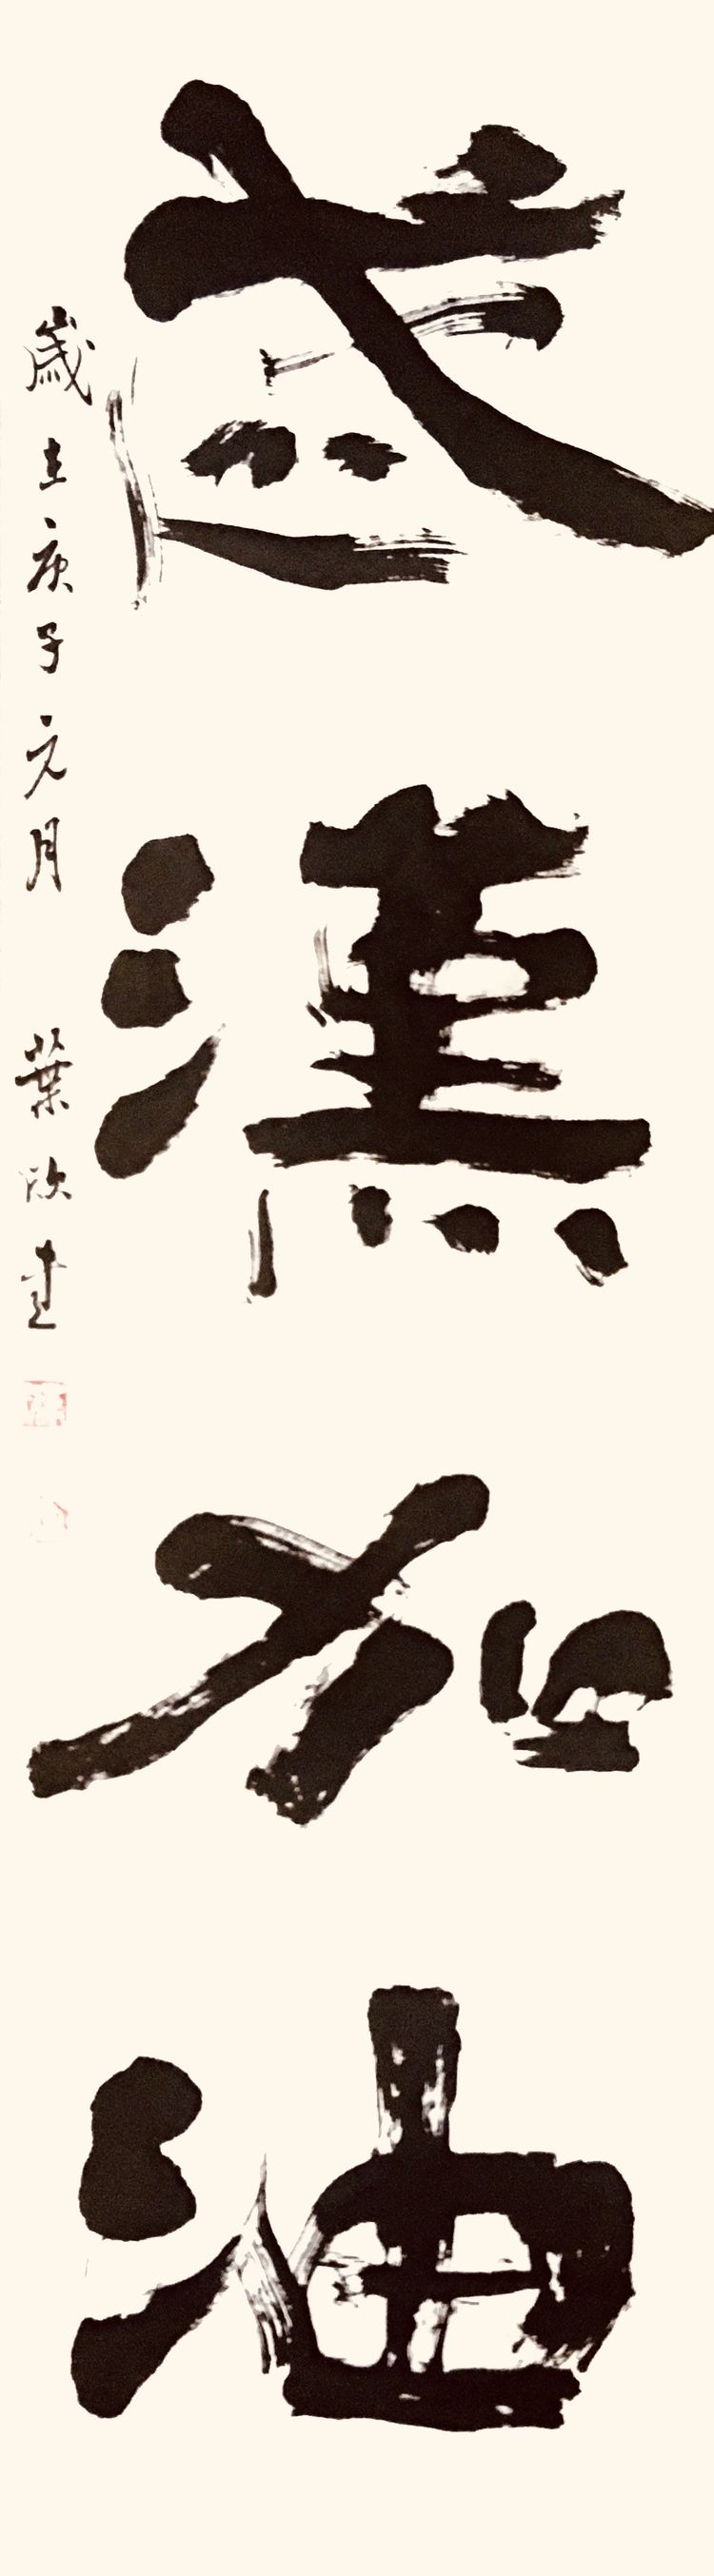 武漢加油
歲在庚子元月 葉欣書